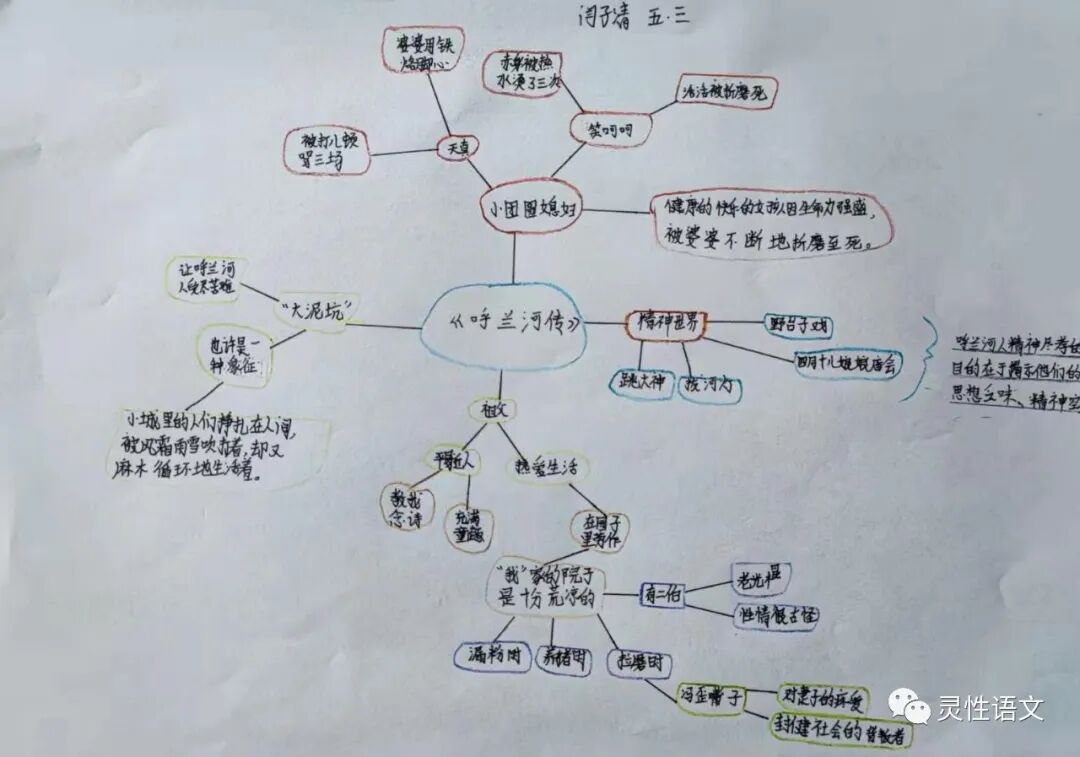 闫子清 五.三
婆婆用铁
烙脚心
赤身被热
水烫了三次
活活被折磨死
笑呵呵
被打几顿
骂三场
天真
小团圆媳妇
健康的快乐的女孩因生命力强盛，
被婆婆不断地折磨至死。
让呼兰河
人受尽苦难
"大泥坑"
也许是一
种象征
小城里的人们挣扎在人间，
被风霜雨雪吹打着，却又
麻木循环地生活着。
《呼兰河传》
精神世界
野台子戏
四月十八娘娘庙会
跳大神
放河灯
呼兰河人精神尽荐的
目的在于揭示他们的
思想乏味、精神空
祖父
平易近人
热爱生活
教我
念诗
充满
童趣
在园子
里劳作
"我"家的院子
是十分荒凉的
有二伯
老光棍
性情很古怪
漏粉的
养猪的
拉磨的
冯歪嘴子
对妻子的疼爱
封建社会的背叛者
灵性语文